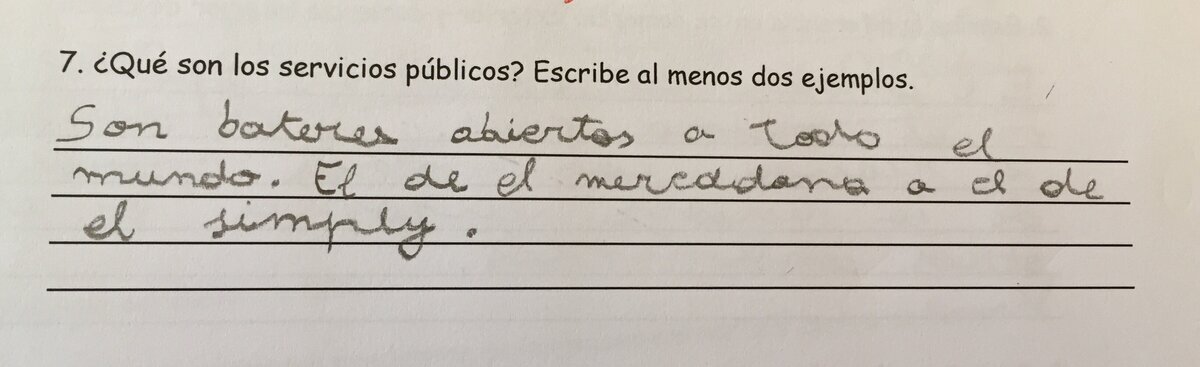 7. ¿Qué son los servicios públicos? Escribe al menos dos ejemplos.
Son bateres abiertos a todo el
mundo. El de el mercadana o el de
el simply.